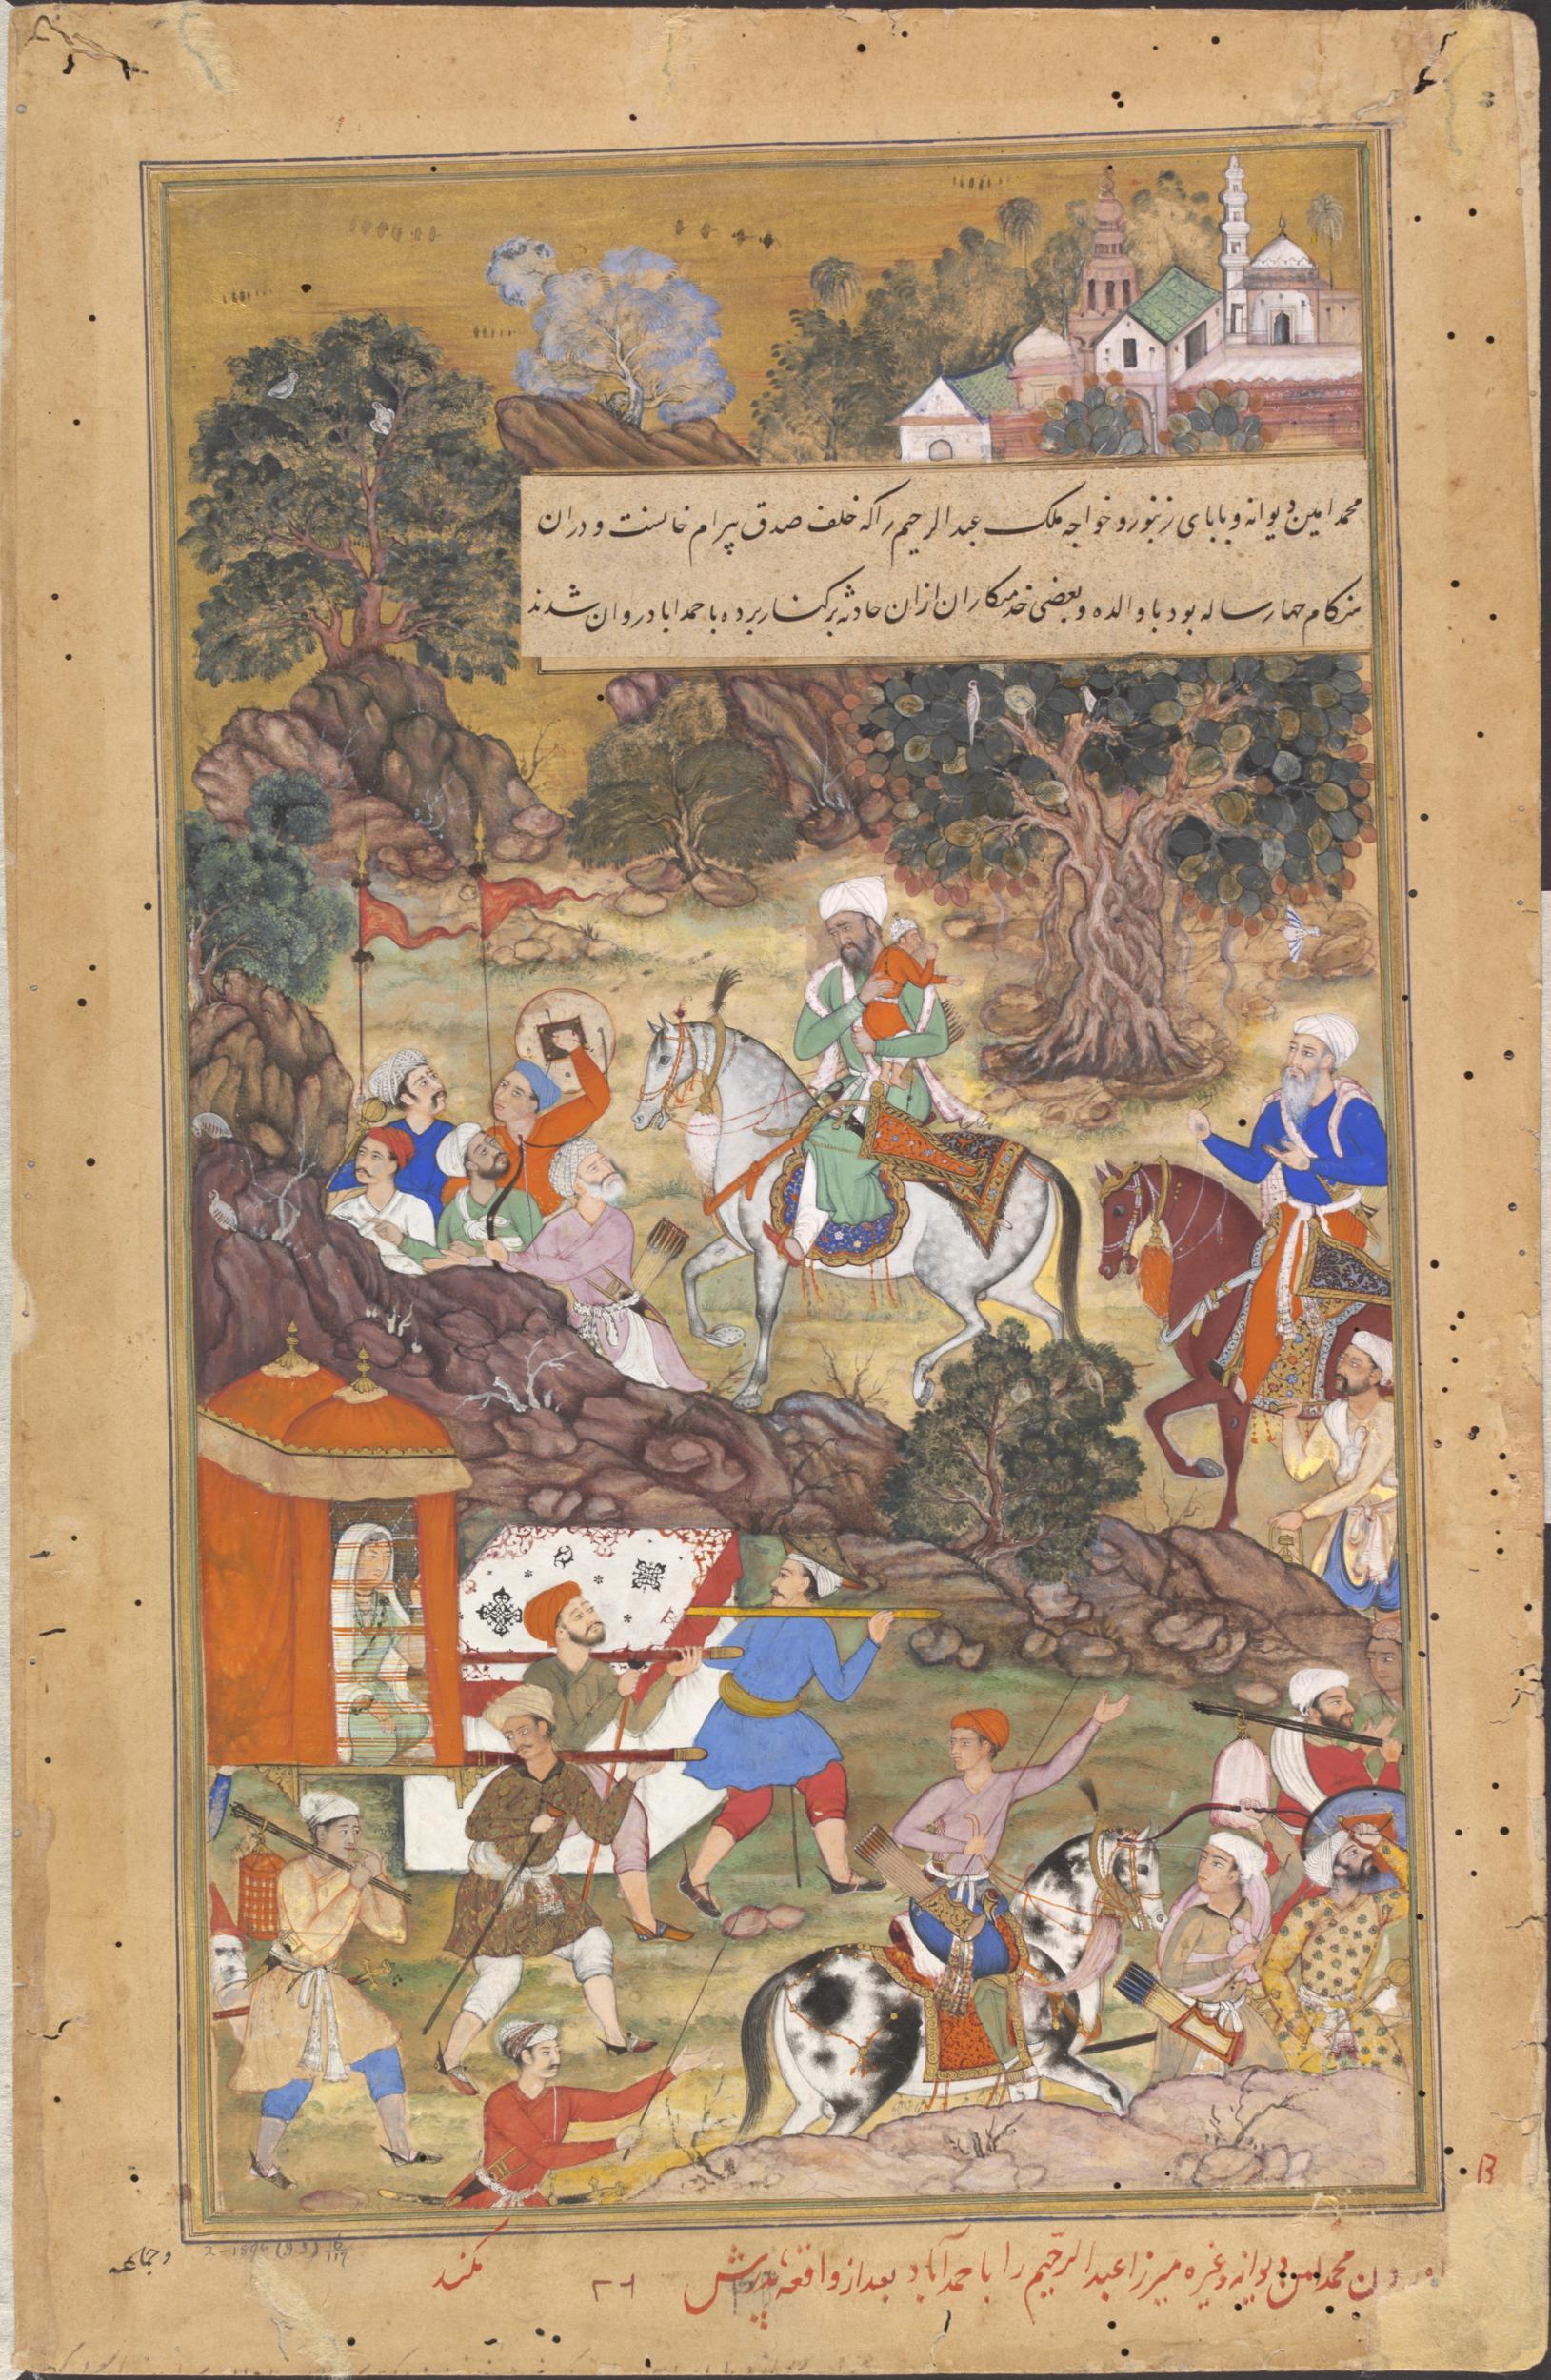 محمد امین دیوانه و بابای زنبور و خواجه ملک عبد الرحیم را که خلف صدق بیرام خانست و در ان
هنکام چهار ساله بود با والده و بعضی خدمتکاران ازان حادثه برکنار برده باحمداباد روان شدند
وجماعه
محمد امین دیوانه وغیره میرزا عبد الرحیم را باحمدآباد بعد از واقعه پدرش
مکند
B